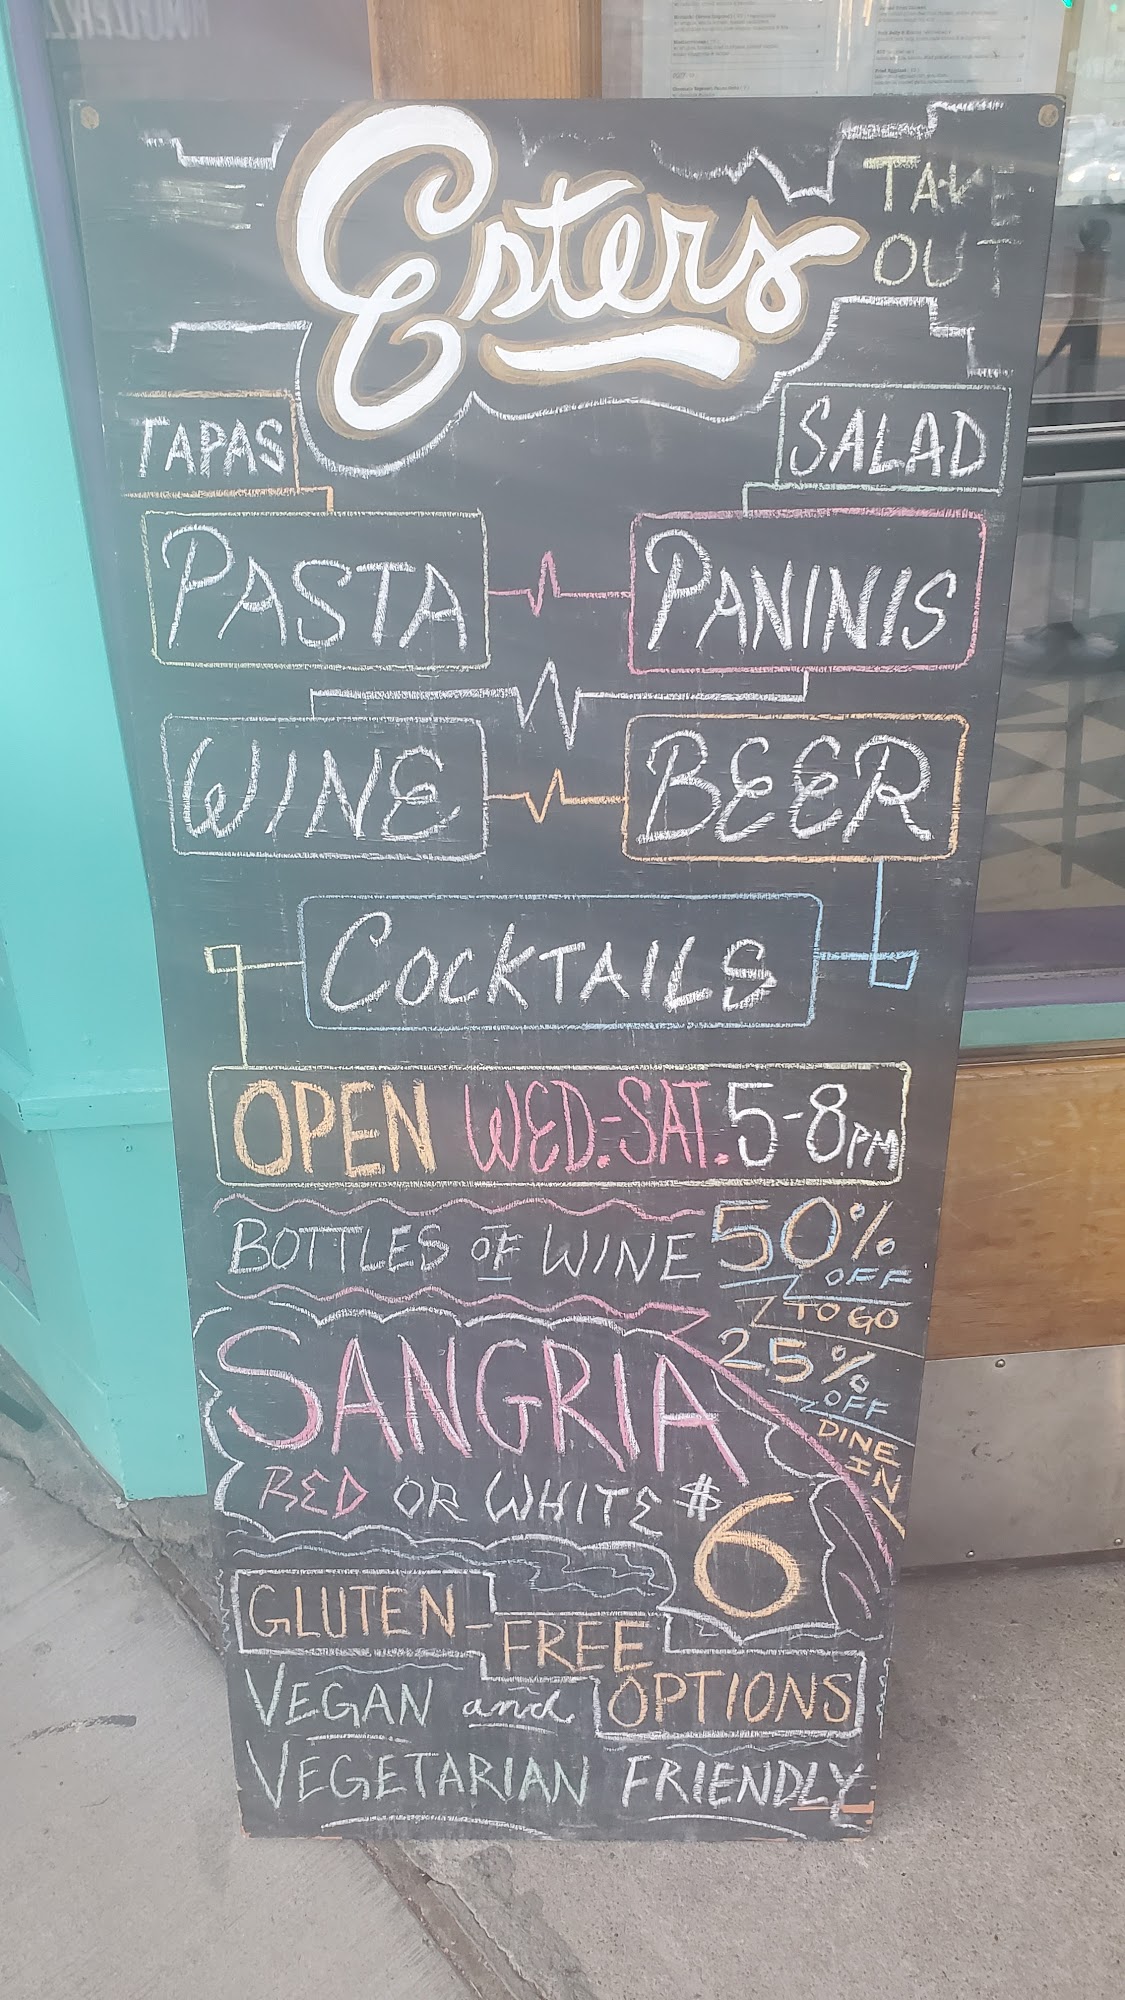 Esters
TAKE
OUT
TAPAS
SALAD
PASTA
PANINIS
WINE
BEER
COCKTAILS
OPEN WED.-SAT. 5-8PM
BOTTLES OF WINE 50%
OFF
TO GO
25%
OFF
DINE
IN
SANGRIA
RED OR WHITE $6
GLUTEN-
FREE
OPTIONS
VEGAN and
VEGETARIAN FRIENDLY